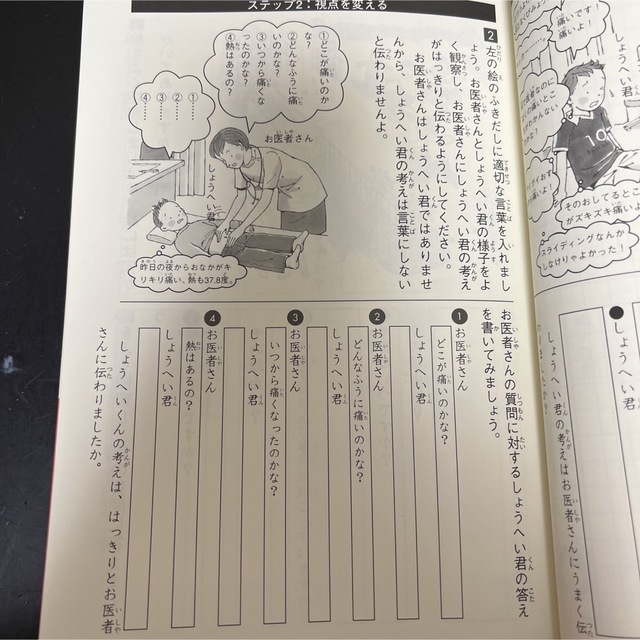 ステップ2：視点を変える
2 左の絵のふきだしに適切な言葉を入れまし
ょう。お医者さんとしょうへい君の様子をよ
く観察し、お医者さんにしょうへい君の考え
がはっきりと伝わるようにしてください。
お医者さんはしょうへい君ではありませ
んから、しょうへい君の考えは言葉にしない
と伝わりませんよ。
①どこが痛いのか
な？
②どんなふうに痛
いのかな？
③いつから痛くな
ったのかな？
④熱はあるの？
①……
②……
③……
④……
お医者さん
しょうへい君
昨日の夜からおなかがキ
リキリ痛い、熱も37.8度。
お医者さんの質問に対するしょうへい君の答え
を書いてみましょう。
❶ お医者さん
どこが痛いのかな？
しょうへい君
❷ お医者さん
どんなふうに痛いのかな？
しょうへい君
❸ お医者さん
いつから痛くなったのかな？
しょうへい君
❹ お医者さん
熱はあるの？
しょうへい君
しょうへいくんの考えは、はっきりとお医者
さんに伝わりましたか。
痛いです！
いよ！
10
そのおしてるとこ
がズキズキ痛い
スライディングなんか
しなけりゃよかった！
しょうへい君の考えはお医者さんにうまく伝